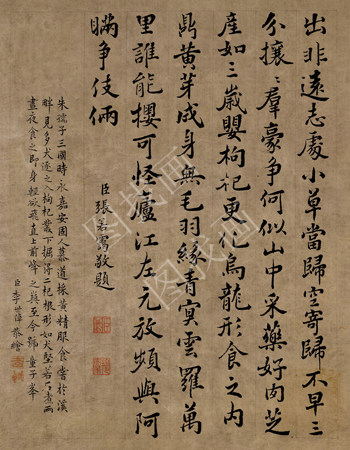 出非遠志處小草當歸空寄歸不早三
分攘攘羣豪爭何似山中采藥好肉芝
産如三歲嬰枸杞更化烏龍形食之内
鼎黄芽成身無毛羽緣青冥雲羅萬
里誰能攖可怪廬江左元放頻與阿
瞞爭伎倆
臣張若靄敬題
朱孺子三國時永嘉安固人慕道採黄精服食嘗於溪
畔見乡犬逐之入枸杞叢下掘得二杞根形如犬堅若石煮而
晝夜食之即身輕欲飛直上前峰之巔至今號童子峯
臣李世倬恭繪